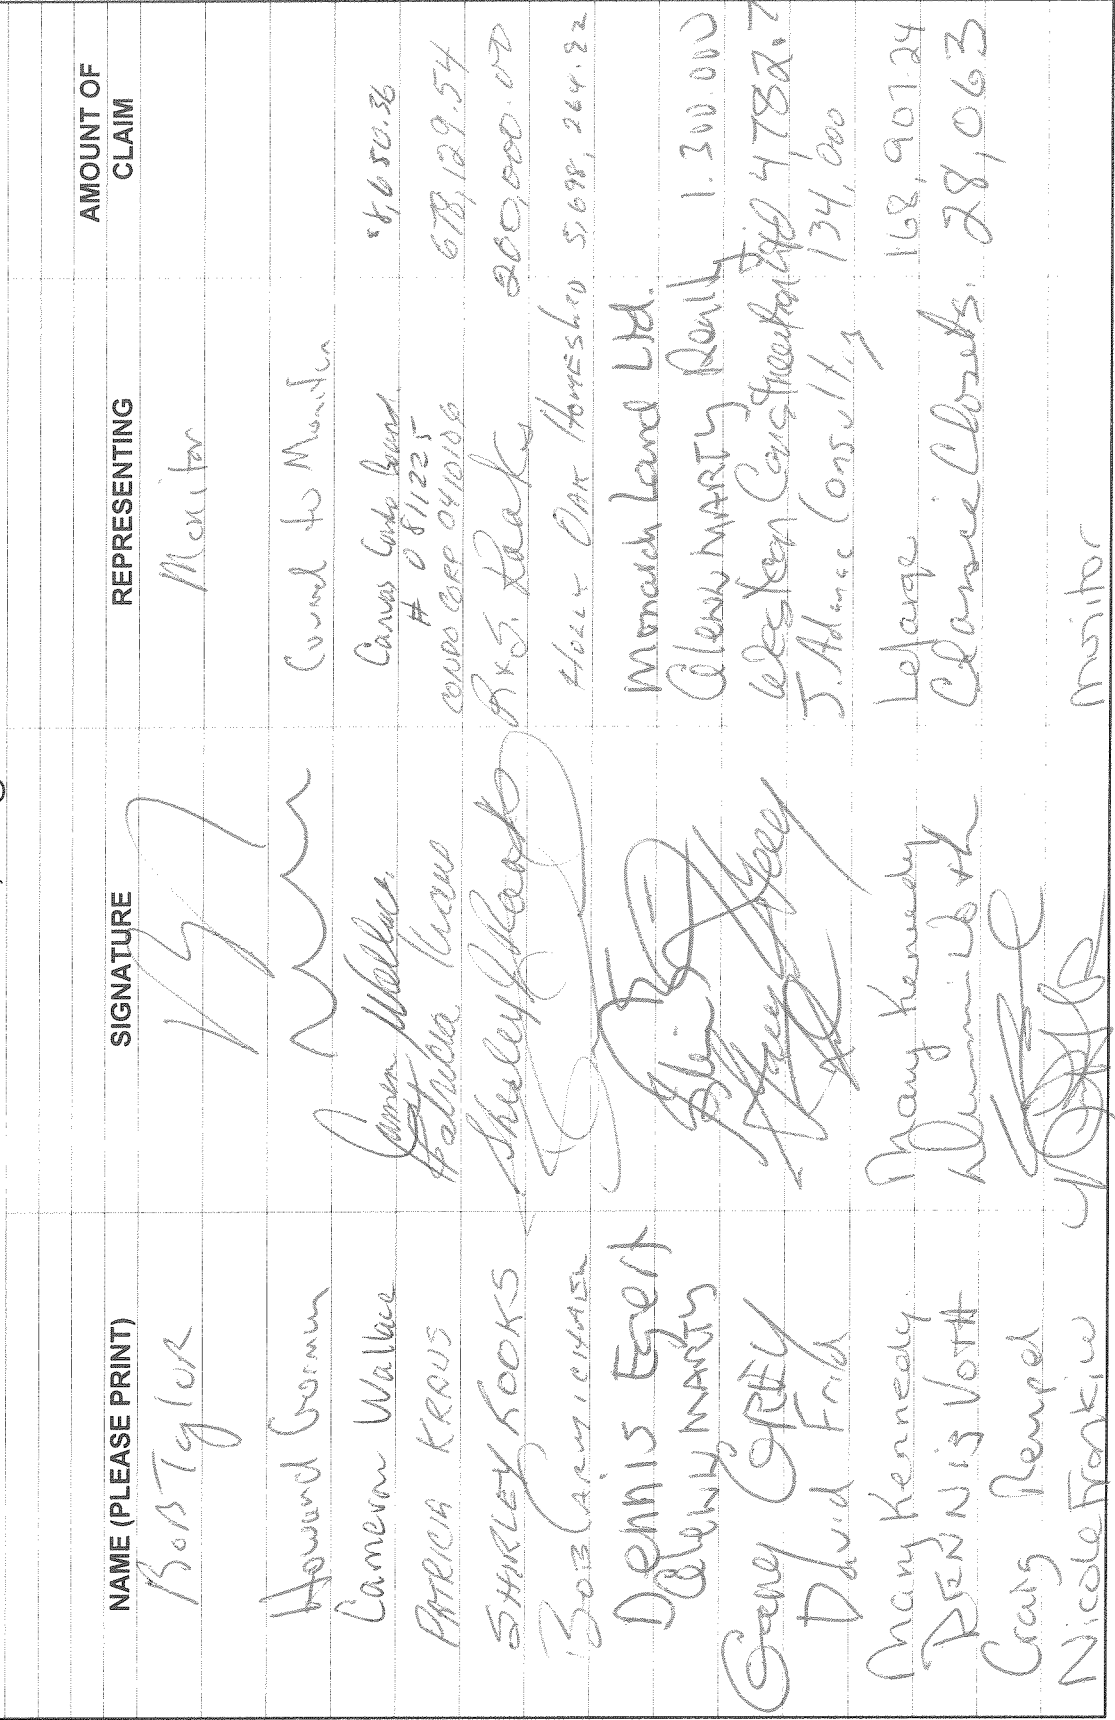 NAME (PLEASE PRINT) SIGNATURE REPRESENTING AMOUNT OF CLAIM
BOB TAYLOR Monitor
Howard Gorman Counsel to Monitor
Cameron Wallace Canvas Condo 8,650.36
# 0811225
PATRICIA KRAUS Patricia Kraus CONDO CORP 0410106 678,129.54
SHIRLEY ROOKS Shirley Rooks R & S. Rooks 200,000.00
BOB CARMICHAEL HOLLY OAK HOMES LTD 5,698,264.92
Dennis Egert Monarch Land Ltd.
GLENN MARTY GLENN MARTY Realty 1.300.000
Gene GREY Weston Construction Ltd 4782.7
David Frild J. Adamac Consulting 134,000
Mary Kennedy Mary Kennedy Lafarge 168,907.24
DENNIS VOTH Dennis Voth Classic Closets. 28,063
Craig Rempel
Nicole Frankiw Monitor